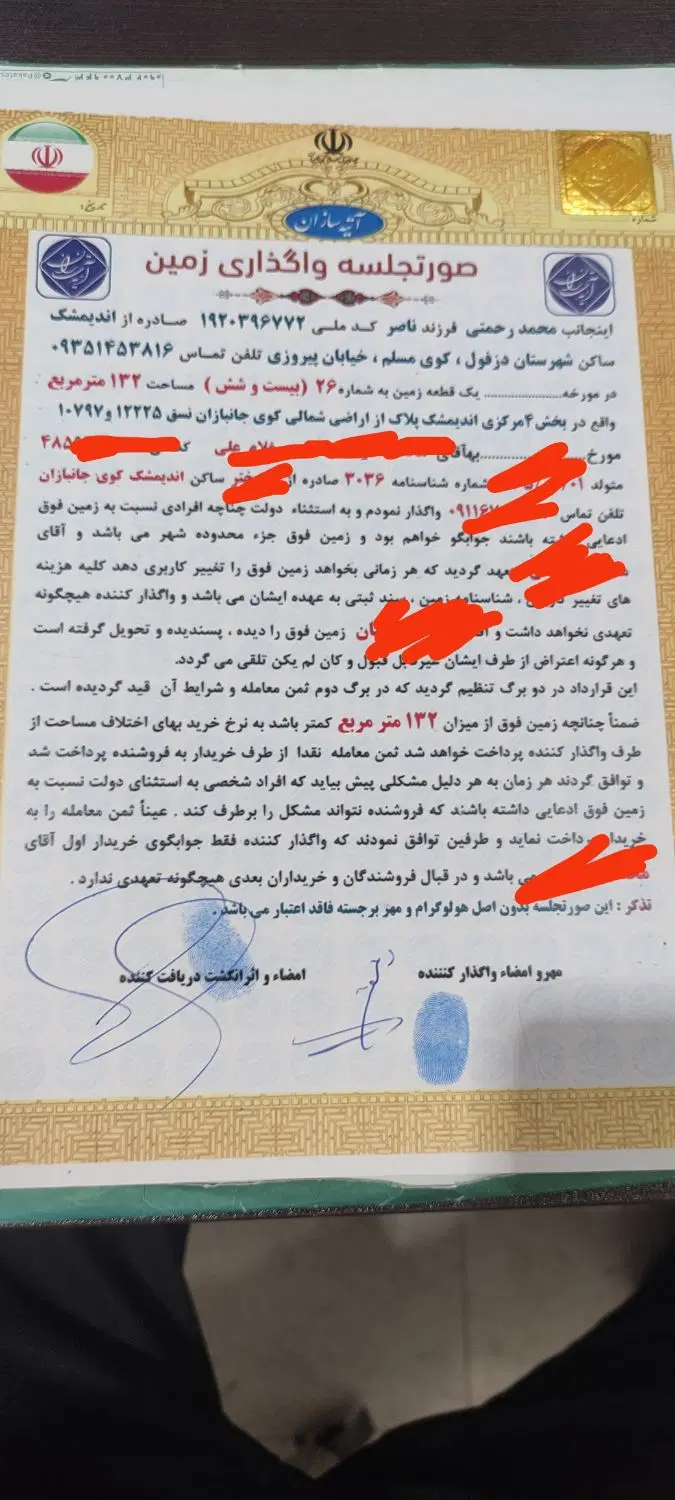 تاریخ:
شماره
آتیه سازان
صورتجلسه واگذاری زمین
اینجانب محمد رحمتی فرزند ناصر کد ملی ۱۹۲۰۳۹۶۷۷۲ صادره از اندیمشک
ساکن شهرستان دزفول ، کوی مسلم ، خیابان پیروزی تلفن تماس ۰۹۳۵۱۴۵۳۸۱۶
در مورخه.................... یک قطعه زمین به شماره ۲۶ (بیست و شش ) مساحت ۱۳۲ مترمربع
واقع در بخش ۴مرکزی اندیمشک پلاک از اراضی شمالی کوی جانبازان نسق ۱۲۲۲۵ و ۱۰۷۹۷
مورخ..................بهآقای
متولد شماره شناسنامه ۳۰۳۶ صادره از ساکن اندیمشک کوی جانبازان
تلفن تماس واگذار نمودم و به استثناء دولت چناچه افرادی نسبت به زمین فوق
ادعایی باشند جوابگو خواهم بود و زمین فوق جزء محدوده شهر می باشد و آقای
گردید که هر زمانی بخواهد زمین فوق را تغییر کاربری دهد کلیه هزینه
های تغییر ، شناسنامه زمین ، سند ثبتی به عهده ایشان می باشد و واگذار کننده هیچگونه
تعهدی نخواهد داشت و زمین فوق را دیده ، پسندیده و تحویل گرفته است
و هرگونه اعتراض از طرف ایشان غیرقابل قبول و کان لم یکن تلقی می گردد.
این قرارداد در دو برگ تنظیم گردید که در برگ دوم ثمن معامله و شرایط آن قید گردیده است .
ضمناً چنانچه زمین فوق از میزان ۱۳۲ متر مربع کمتر باشد به نرخ خرید بهای اختلاف مساحت از
طرف واگذار کننده پرداخت خواهد شد ثمن معامله نقدا از طرف خریدار به فروشنده پرداخت شد
و توافق گردند هر زمان به هر دلیل مشکلی پیش بیاید که افراد شخصی به استثنای دولت نسبت به
زمین فوق ادعایی داشته باشند که فروشنده نتواند مشکل را برطرف کند . عیناً ثمن معامله را به
خریدار پرداخت نماید و طرفین توافق نمودند که واگذار کننده فقط جوابگوی خریدار اول آقای
می باشد و در قبال فروشندگان و خریداران بعدی هیچگونه تعهدی ندارد .
تذکر : این صورتجلسه بدون اصل هولوگرام و مهر برجسته فاقد اعتبار می باشد .
مهرو امضاء واگذار کنننده
امضاء و اثرانگشت دریافت کننده